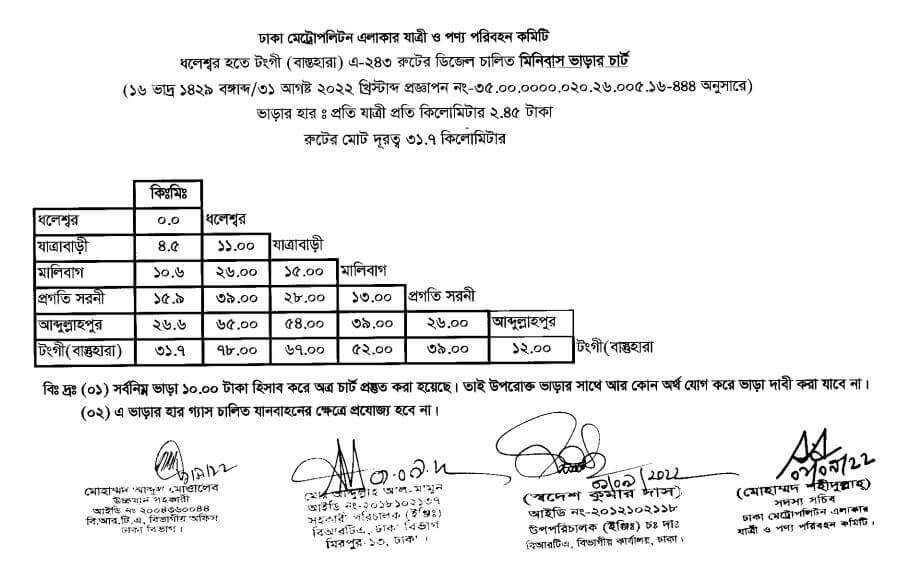 ঢাকা মেট্রোপলিটন এলাকার যাত্রী ও পণ্য পরিবহন কমিটি
ধলেশ্বর হতে টংগী (বাস্তহারা) এ-২৪৩ রুটের ডিজেল চালিত মিনিবাস ভাড়ার চার্ট
(১৬ ভাদ্র ১৪২৯ বঙ্গাব্দ/৩১ আগষ্ট ২০২২ খ্রিস্টাব্দ প্রজ্ঞাপন নং-৩৫.০০.০০০০.০২০.২৬.০০৫.১৬-৪৪৪ অনুসারে)
ভাড়ার হার ঃ প্রতি যাত্রী প্রতি কিলোমিটার ২.৪৫ টাকা
রুটের মোট দূরত্ব ৩১.৭ কিলোমিটার
কিঃমিঃ
ধলেশ্বর ০.০ ধলেশ্বর
যাত্রাবাড়ী ৪.৫ ১১.০০ যাত্রাবাড়ী
মালিবাগ ১০.৬ ২৬.০০ ১৫.০০ মালিবাগ
প্রগতি সরনী ১৫.৯ ৩৯.০০ ২৮.০০ ১৩.০০ প্রগতি সরনী
আব্দুল্লাহপুর ২৬.৬ ৬৫.০০ ৫৪.০০ ৩৯.০০ ২৬.০০ আব্দুল্লাহপুর
টংগী(বাস্তুহারা) ৩১.৭ ৭৮.০০ ৬৭.০০ ৫২.০০ ৩৯.০০ ১২.০০ টংগী(বাস্তুহারা
বিঃ দ্রঃ (০১) সর্বনিম্ন ভাড়া ১০.০০ টাকা হিসাব করে অত্র চার্ট প্রস্তুত করা হয়েছে। তাই উপরোক্ত ভাড়ার সাথে আর কোন অর্থ যোগ করে ভাড়া দাবী করা যাবে না।
(০২) এ ভাড়ার হার গ্যাস চালিত যানবাহনের ক্ষেত্রে প্রযোজ্য হবে না।
মোহাম্মদ আব্দুল মোত্তালেব
উচ্চমান সহকারী
আইডি নং ২০০৪৩৬০০৪৪
বি.আর.টি.এ, বিভাগীয় অফিস
ঢাকা বিভাগ।
মোঃ আব্দুল্লাহ আল-মামুন
আইডি নং-২০১৮১০২১৩৭
সহকারী পরিচালক (ইঞ্জিঃ)
বিআরটিএ, ঢাকা বিভাগ
মিরপুর-১৩, ঢাকা।
০৮/০৯/২০২২
(স্বদেশ কুমার দাস)
আইডি নং-২০১২১০২১১৮
উপপরিচালক (ইঞ্জিঃ) চঃ দাঃ
বিআরটিএ, বিভাগীয় কার্যালয়, ঢাকা।
০৮/০৯/২২
(মোহাম্মদ শহীদুল্লাহ্)
সদস্য সচিব
ঢাকা মেট্রোপলিটন এলাকার
যাত্রী ও পণ্য পরিবহন কমিটি।